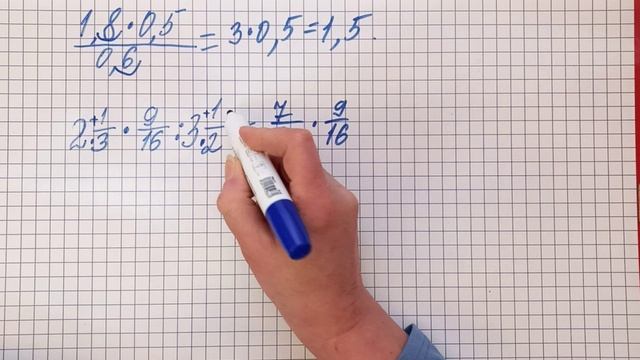 1,8·0,5/0,6 = 3·0,5=1,5.
2 +1/·3 · 9/16 : 3 +1/·2 = 7/ · 9/16